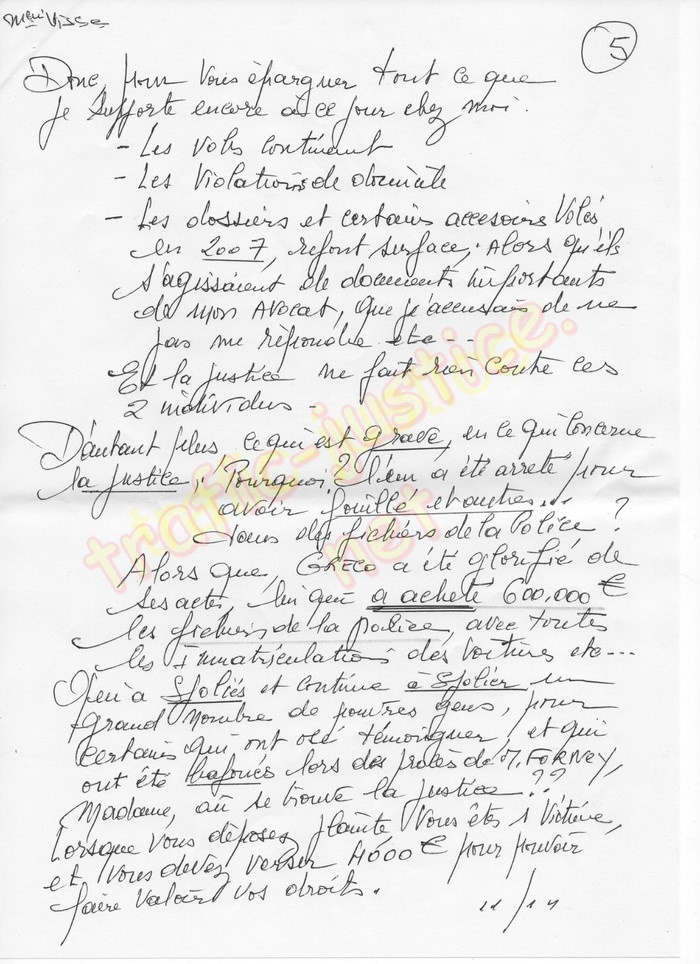 5
Donc, pour vous épargner tout ce que
je supporte encore à ce jour chez moi.
- Les vols continuent
- Les violations de domicile
- Les dossiers et certains accesoires volés
en 2007, refont surface, Alors qu'ils
s'agissaient de documents importants
de mon Avocat, que j'accusais de ne
pas me répondre etc--
Et la justice ne fait rien contre ces
2 individus -
D'autant plus, ce qui est grave, en ce qui concerne
la justice, ! Pourquoi? l'un a été arrêté pour
avoir fouillé et autres...
dans des fichiers de la Police ?
Alors que, GRECO a été glorifié de
ses actes, lui qui a acheté 600.000 €
les fichiers de la police, avec toutes
les immatriculations des voitures etc---
Qui a spoliés et continue à spolier un
grand nombre de pauvres gens, pour
certains qui ont osé témoigner, et qui
ont été bafoués lors des procès de M. FORNEY,
Madame, où se trouve la justice ??
Lorsque vous déposez plainte vous êtes 1 victime,
et vous devez verser 4600 € pour pouvoir
faire valoir vos droits.
11/14
trafic-justice.
net